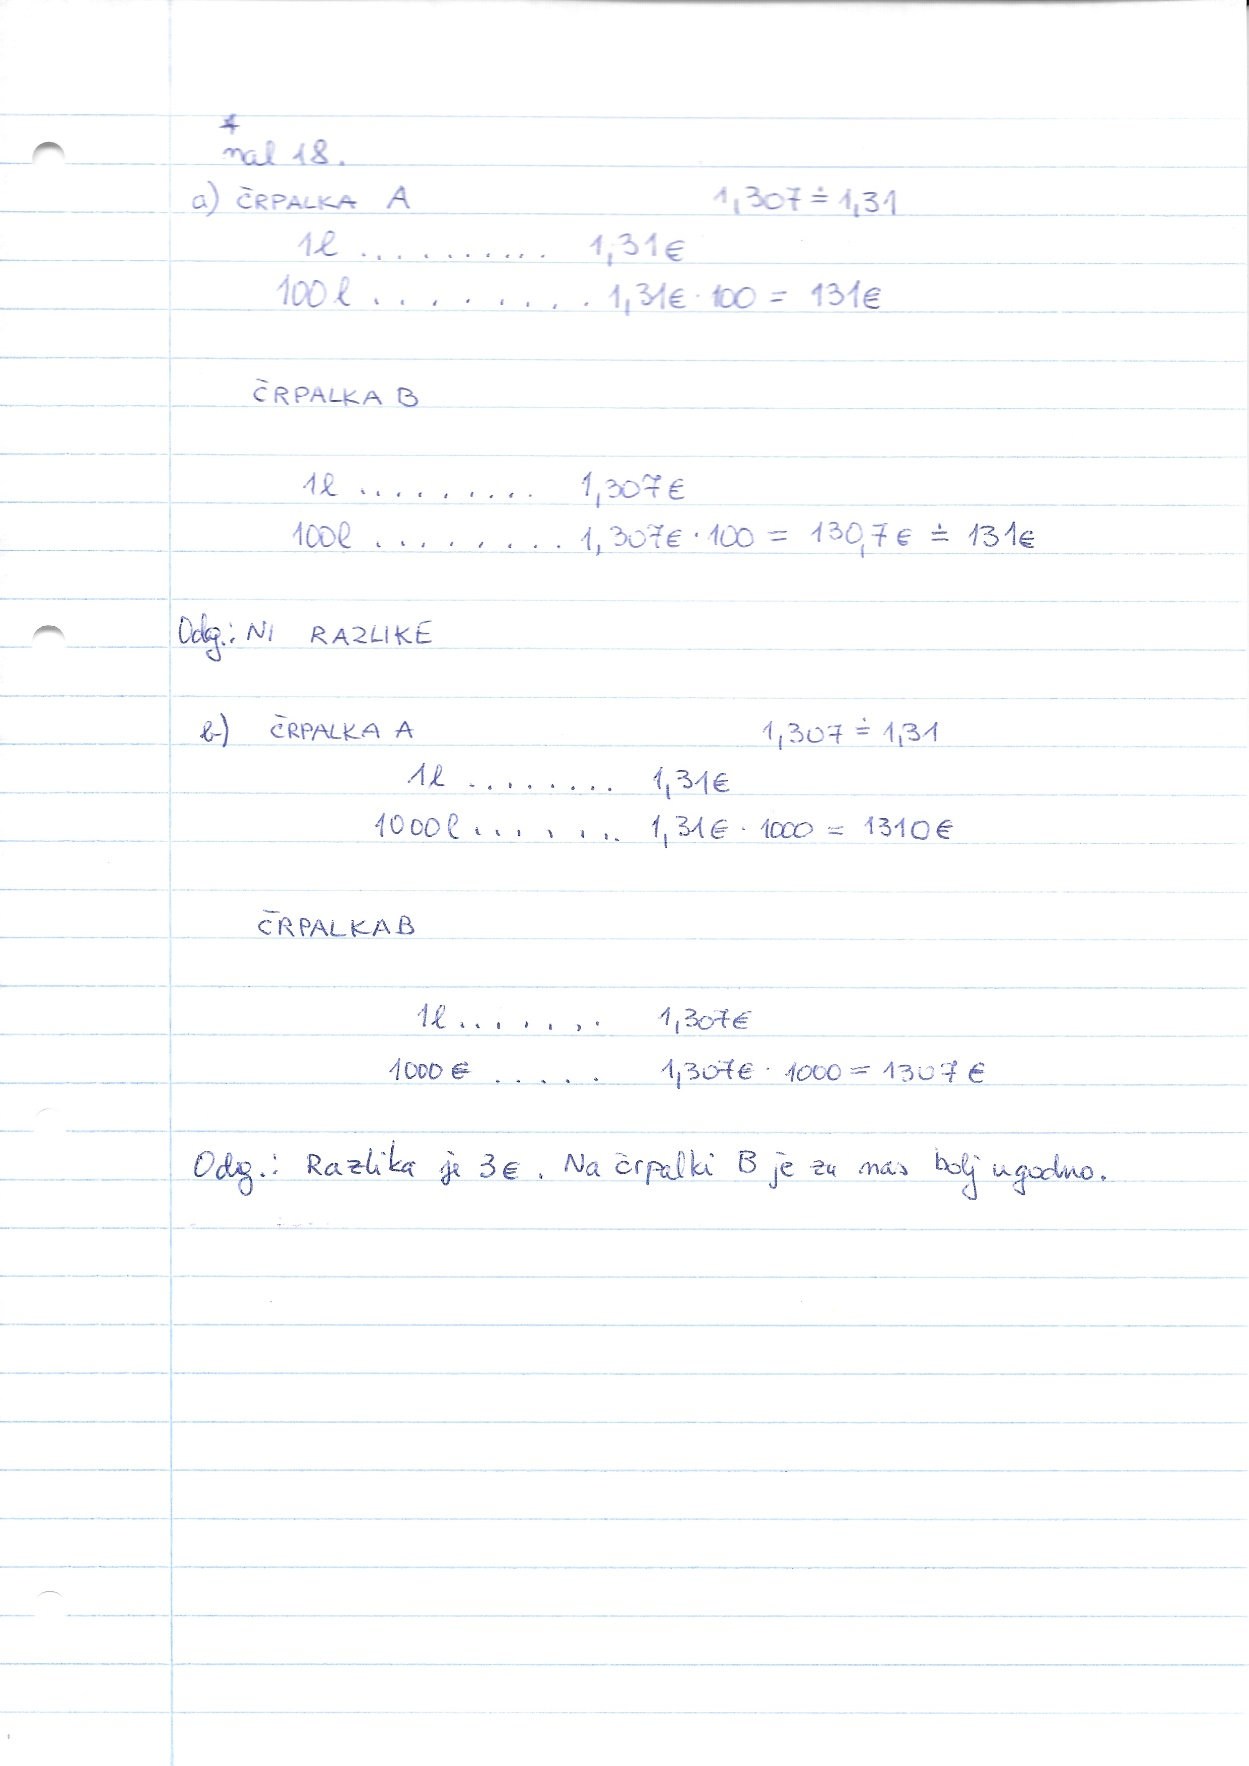 *
nal 18.
a) ČRPALKA A 1,307 ≐ 1,31
1l .......... 1,31€
100l ........ 1,31€ · 100 = 131€
ČRPALKA B
1l ......... 1,307€
100l ........ 1,307€ · 100 = 130,7€ ≐ 131€
Odg.: NI RAZLIKE
b) ČRPALKA A 1,307 ≐ 1,31
1l ........ 1,31€
1000l ....... 1,31€ · 1000 = 1310€
ČRPALKA B
1l ....... 1,307€
1000€ ..... 1,307€ · 1000 = 1307€
Odg.: Razlika je 3€. Na črpalki B je za nas bolj ugodno.